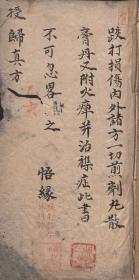 跌打損傷內外諸方一切煎劑丸散
膏丹又附火瘴并治襍症此書
不可忽畧之
悟緣
授歸真方